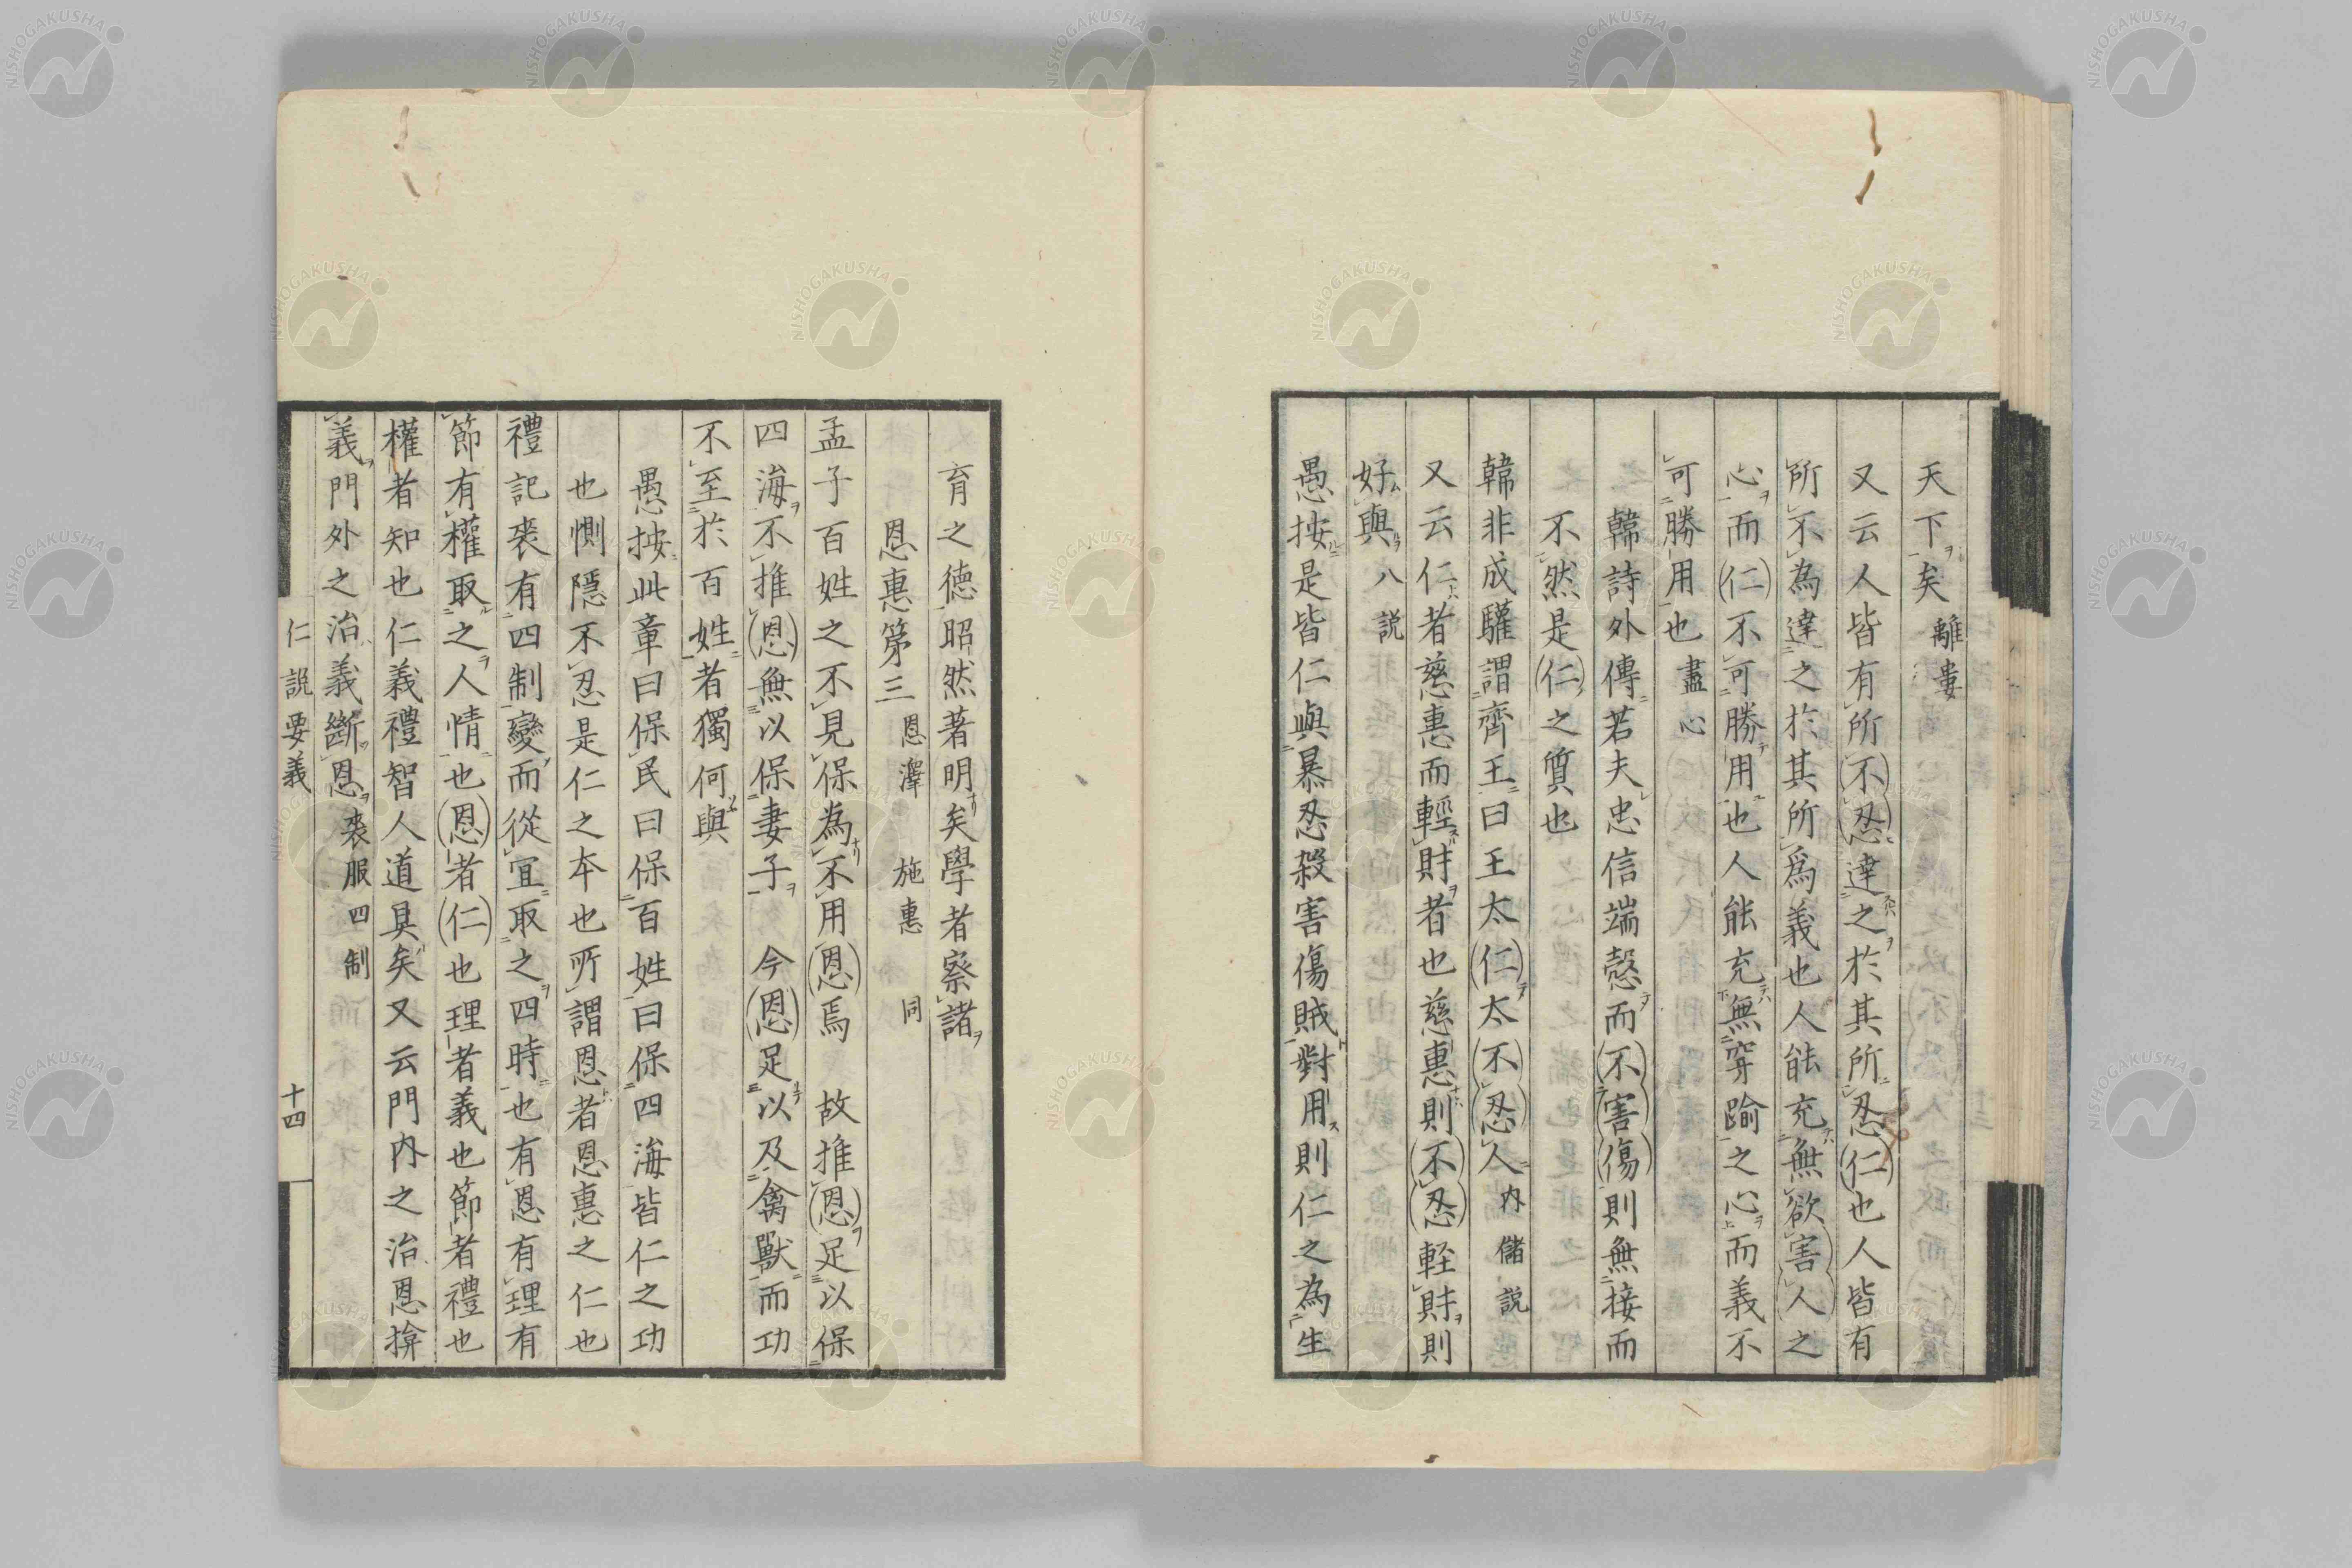 天下矣離婁
又云人皆有所不忍達之於其所忍仁也人皆有
所不為達之於其所爲義也人能充無欲害人之
心而仁不可勝用也人能充無穿踰之心而義不
可勝用也盡心
韓詩外傳若夫忠信端愨而不害傷則無接而
不然是仁之質也
韓非成驩謂齊王曰王太仁太不忍人内儲説
又云仁者慈惠而輕財者也慈惠則不忍軽財則
好與八説
愚按是皆仁與暴忍殺害傷賊對用則仁之為生
育之德昭然著明矣學者察諸
恩惠第三恩澤 施惠 同
孟子百姓之不見保為不用恩焉 故推恩足以保
四海不推恩無以保妻子 今恩足以及禽獸而功
不至於百姓者獨何與
愚按此章曰保民曰保百姓曰保四海皆仁之功
也惻隱不忍是仁之本也所謂恩者恩惠之仁也
禮記喪有四制變而從宜取之四時也有恩有理有
節有權取之人情也恩者仁也理者義也節者禮也
權者知也仁義禮智人道具矣又云門内之治恩揜
義門外之治義斷恩喪服四制
仁説要義
十四
NISHOGAKUSHA